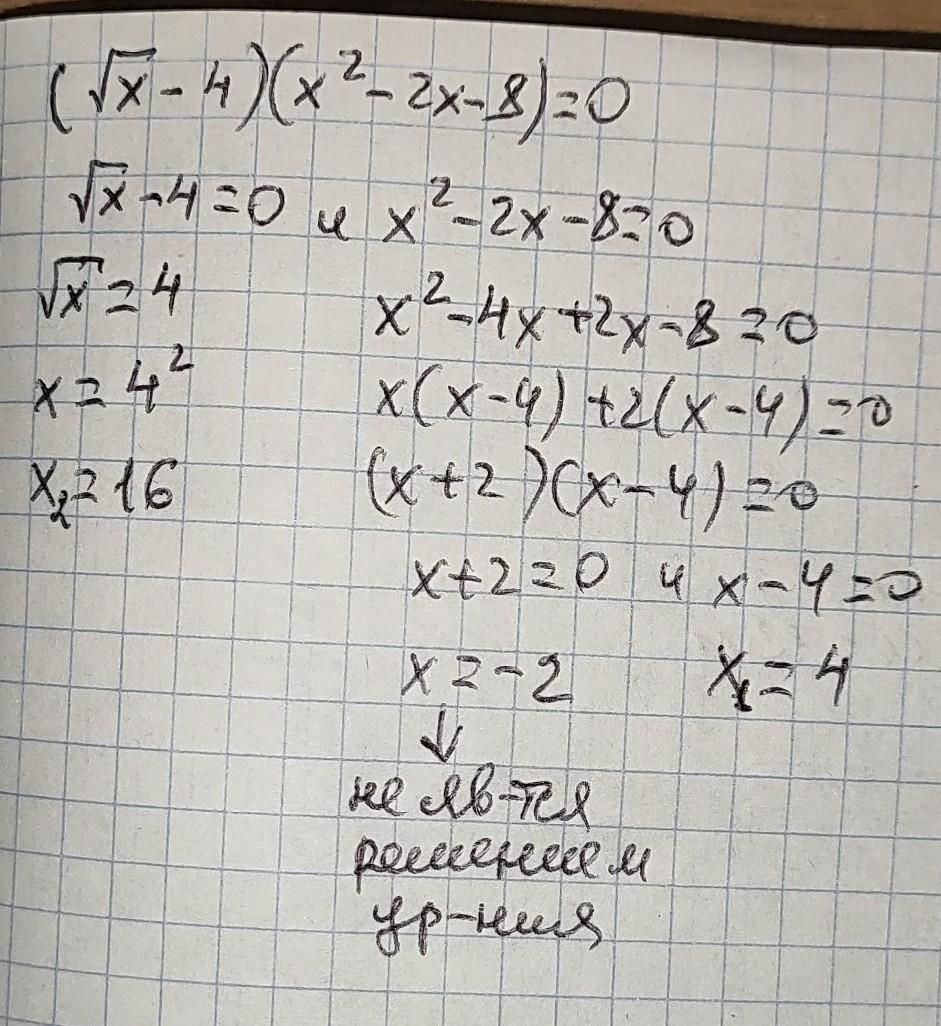 (√x - 4)(x² - 2x - 8) = 0
√x - 4 = 0 и x² - 2x - 8 = 0
√x = 4 x² - 4x + 2x - 8 = 0
x = 4² x(x - 4) + 2(x - 4) = 0
x₂ = 16 (x + 2)(x - 4) = 0
x + 2 = 0 и x - 4 = 0
x = -2 x₁ = 4
↓
не яв-тся
решением
ур-ния